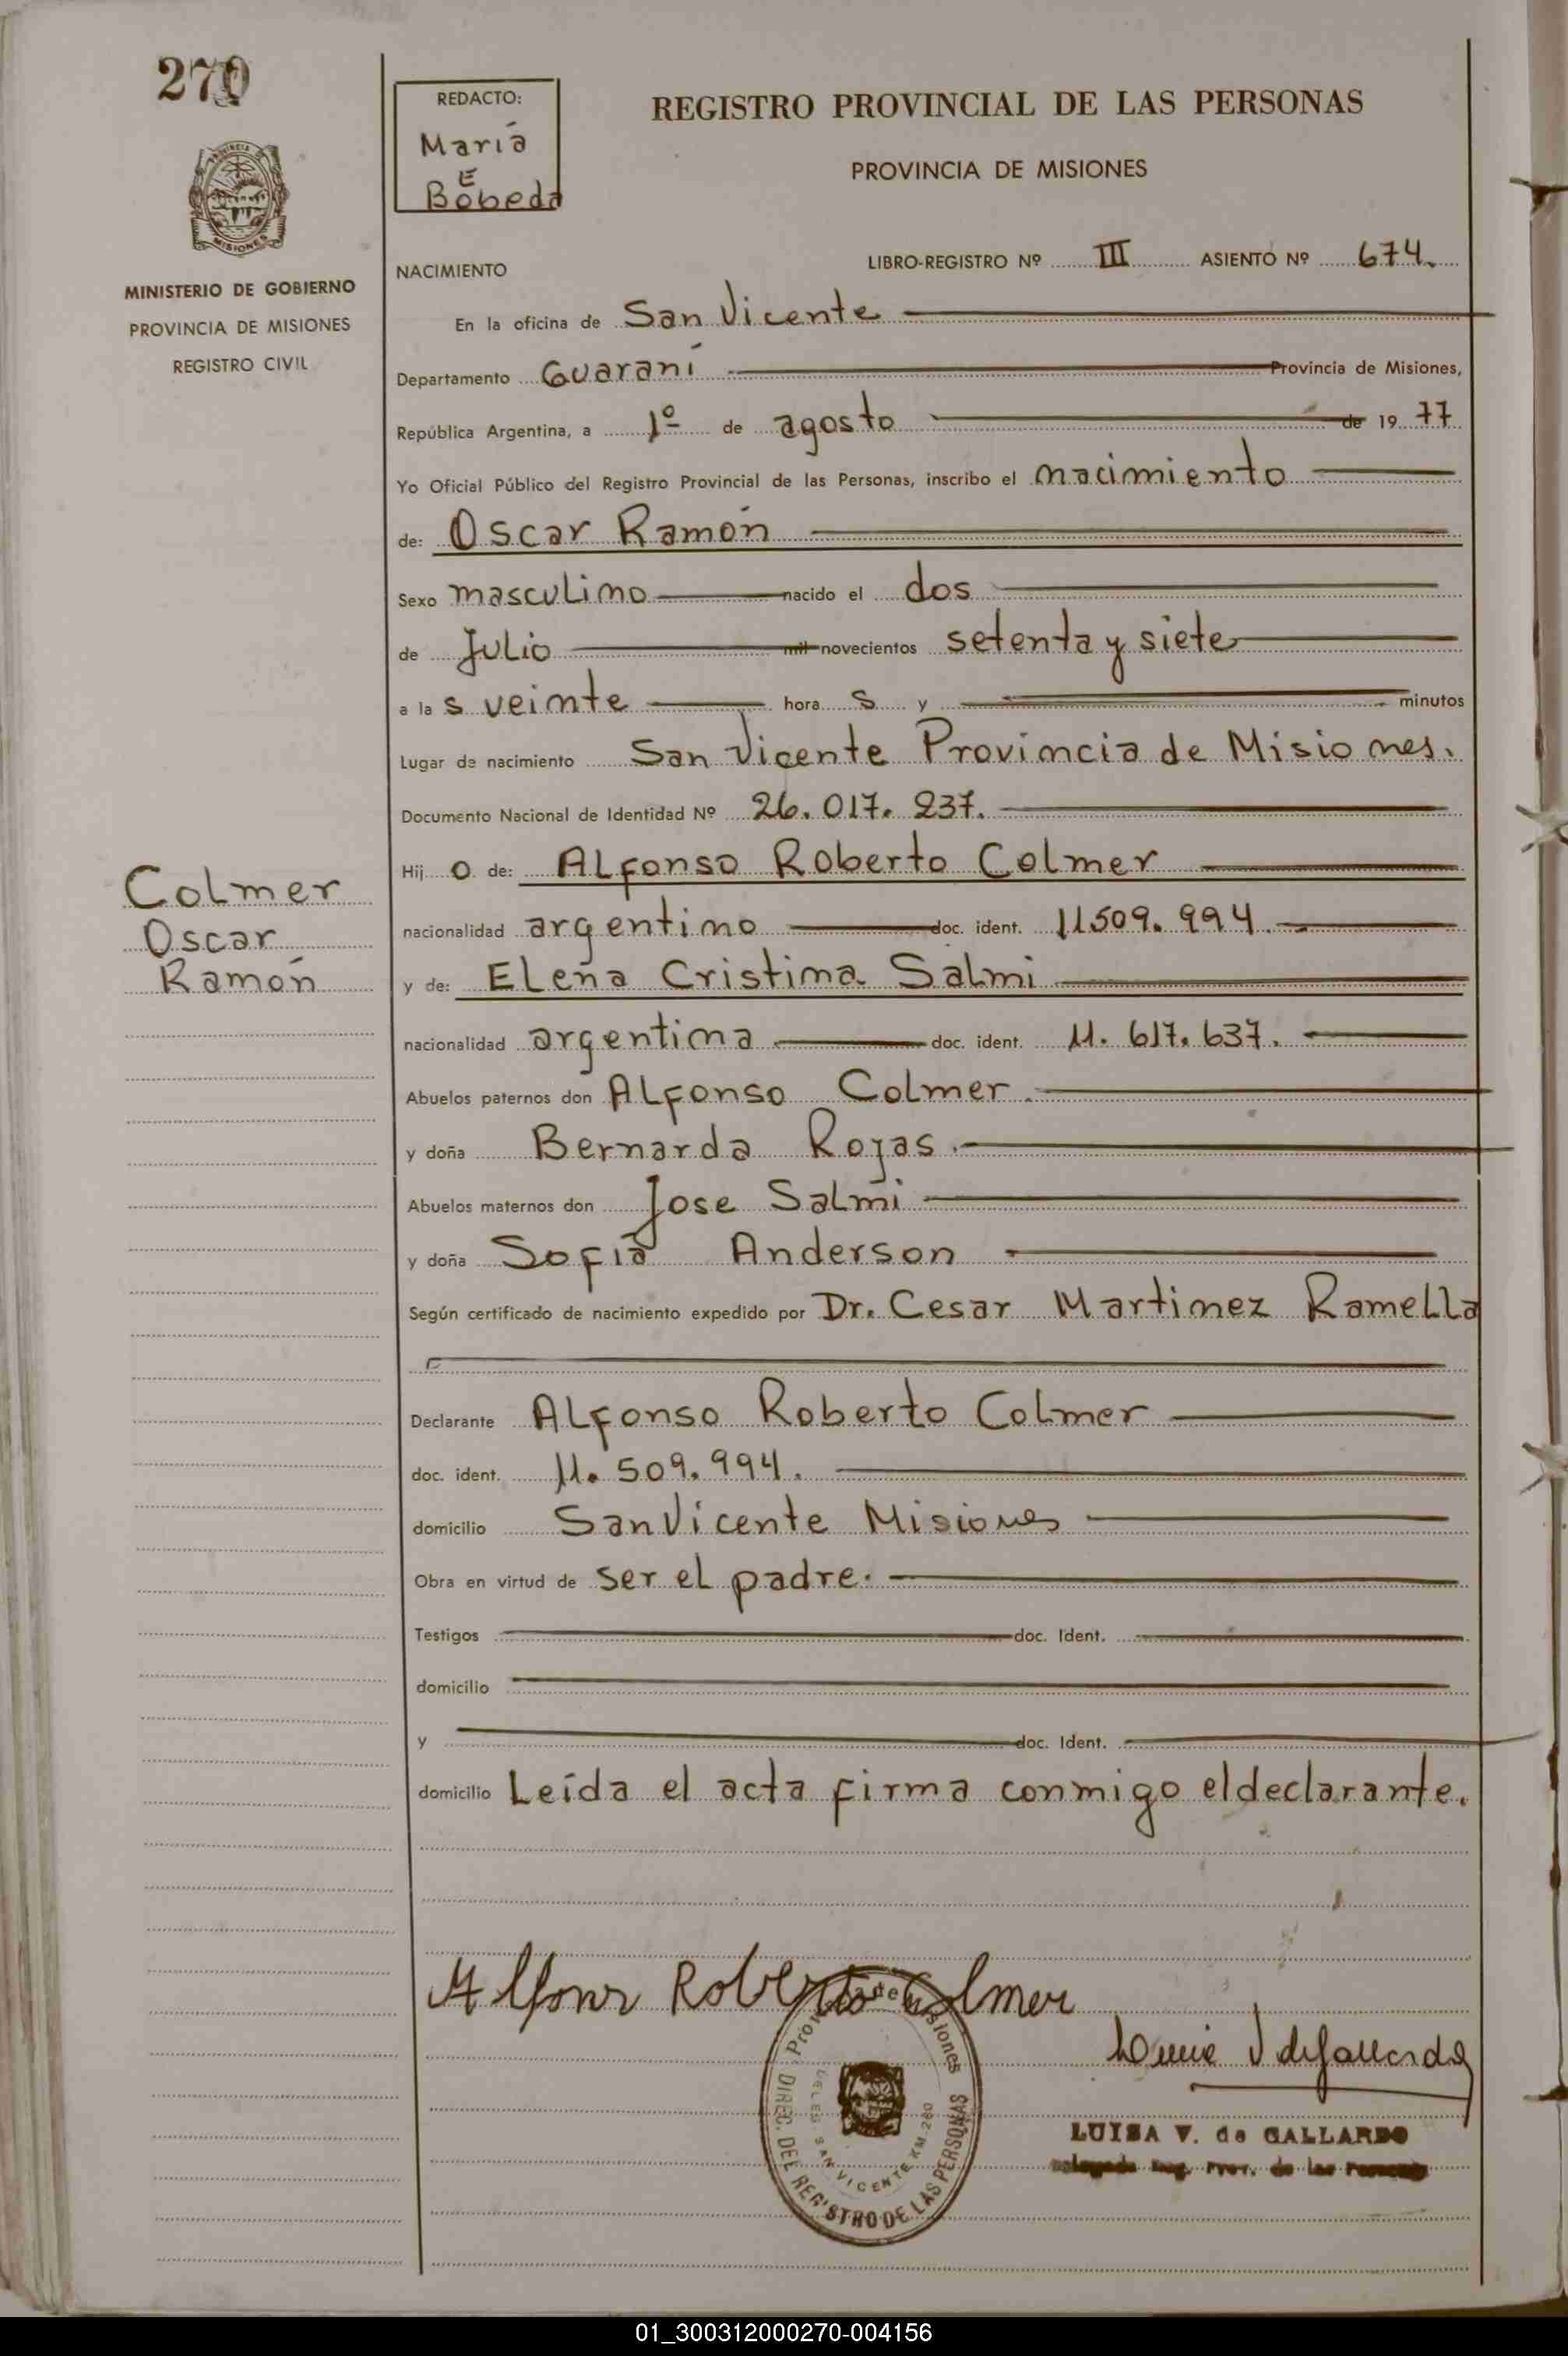 270
REDACTO:
María
E
Bóbeda
REGISTRO PROVINCIAL DE LAS PERSONAS
PROVINCIA DE MISIONES
MISIONES
MINISTERIO DE GOBIERNO
PROVINCIA DE MISIONES
REGISTRO CIVIL
NACIMIENTO
LIBRO-REGISTRO Nº III ASIENTO Nº 674.
En la oficina de San Vicente
Departamento Guaraní Provincia de Misiones,
República Argentina, a 1º de agosto de 19 77
Yo Oficial Público del Registro Provincial de las Personas, inscribo el nacimiento
de: Oscar Ramón
Sexo masculino nacido el dos
de Julio mil novecientos setenta y siete
a la s veinte hora s y minutos
Lugar de nacimiento San Vicente Provincia de Misiones.
Documento Nacional de Identidad Nº 26.017.237.
Hij o de: Alfonso Roberto Colmer
Colmer
Oscar
Ramón
nacionalidad argentino doc. ident. 11509.994.
y de: Elena Cristina Salmi
nacionalidad argentina doc. ident. 11.617.637.
Abuelos paternos don Alfonso Colmer.
y doña Bernarda Rojas.
Abuelos maternos don Jose Salmi
y doña Sofía Anderson
Según certificado de nacimiento expedido por Dr. Cesar Martinez Ramella
Declarante Alfonso Roberto Colmer
doc. ident. 11.509.994.
domicilio San Vicente Misiones
Obra en virtud de ser el padre.
Testigos doc. Ident.
domicilio
y doc. Ident.
domicilio Leída el acta firma conmigo el declarante.
Alfonso Roberto Colmer
Provincia de Misiones
DIREC. DEL REGISTRO DE LAS PERSONAS
SAN VICENTE KM.
Luisa V de Gallardo
LUISA V. de GALLARDO
Delegada Reg. Prov. de las Personas
01_300312000270-004156